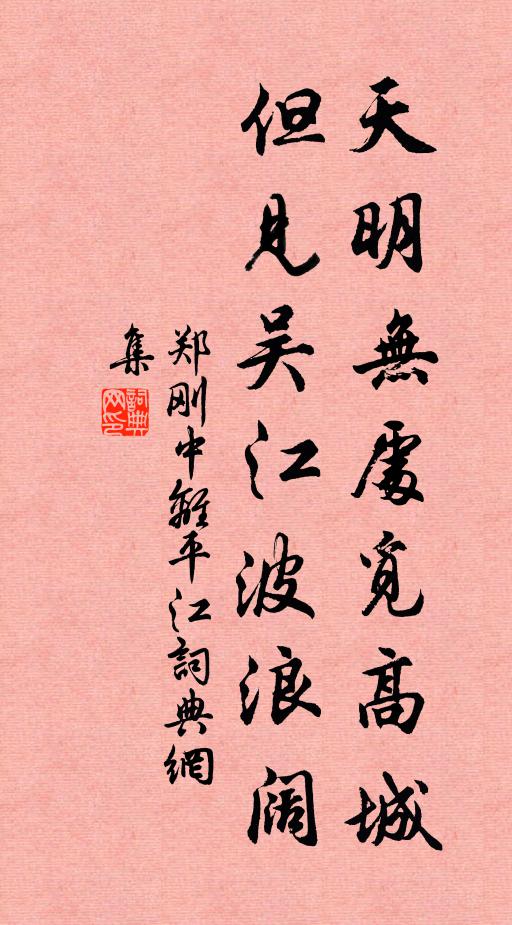 天明無處覓高城
但见吴江波浪阔
郑刚中離平江詞典網
集
詞典網印